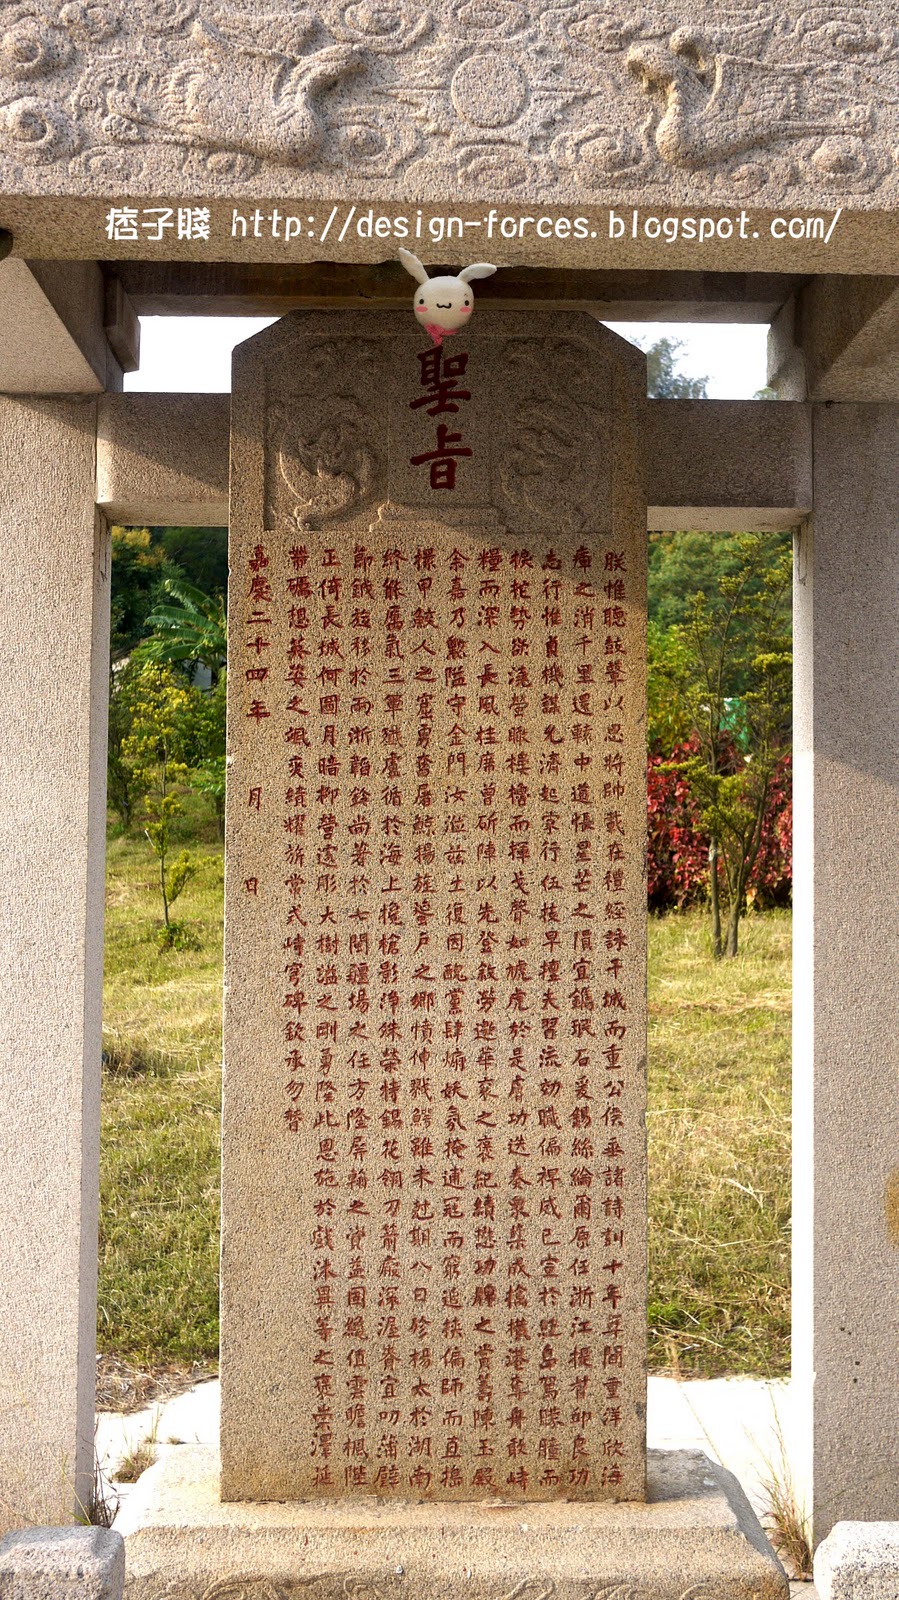 痞子賤 http://design-forces.blogspot.com/
聖旨
朕惟聽鼓鼙以思將帥載在禮經詠干城而重公侯垂諸詩訓十年間重洋欣海
之消千里還轅中道悵星芒之隕宜鐫珉石爰錫絲綸爾原任浙江提督邱良功
志行惟貞機謀允濟起家行伍技早擅夫習流効職偏裨威已宣於
勢欲澆螢眺樓櫓而揮戈聲如虓虎於是膚功迭奏眾集成擒橫港奪舟敢峙
糧而深入長風挂席曾斫陣以先登敘勞邀華袞之褒紀績懋功牌之賞籌陳玉殿
余嘉乃懃隘守金門汝溢茲土復因醜黨肆煽妖氛掩逋寇而窮追挾偏師而直搗
擐甲鮫人之窟勇奮屠鯨揚旌蜑戶之鄉憤伸戮鱷雖未尅期八日殄楊太於湖南
終能厲氣三軍殲盧循於海上欃槍影淨殊榮特錫花翎刀箭瘢深渥眷宜叨蒲璧
節鉞旋移於兩浙韜鈐尚著於七閩疆場之任方隆屏翰之資益固纔值雲幨楓陛
正倚長城何圖月暗柳營遽彫大樹謚之剛勇隆此恩施於戲沐異等之褒崇澤延
帶礪想英姿之颯爽績耀旂常式峙穹碑欽承勿替
嘉慶二十四年 月 日